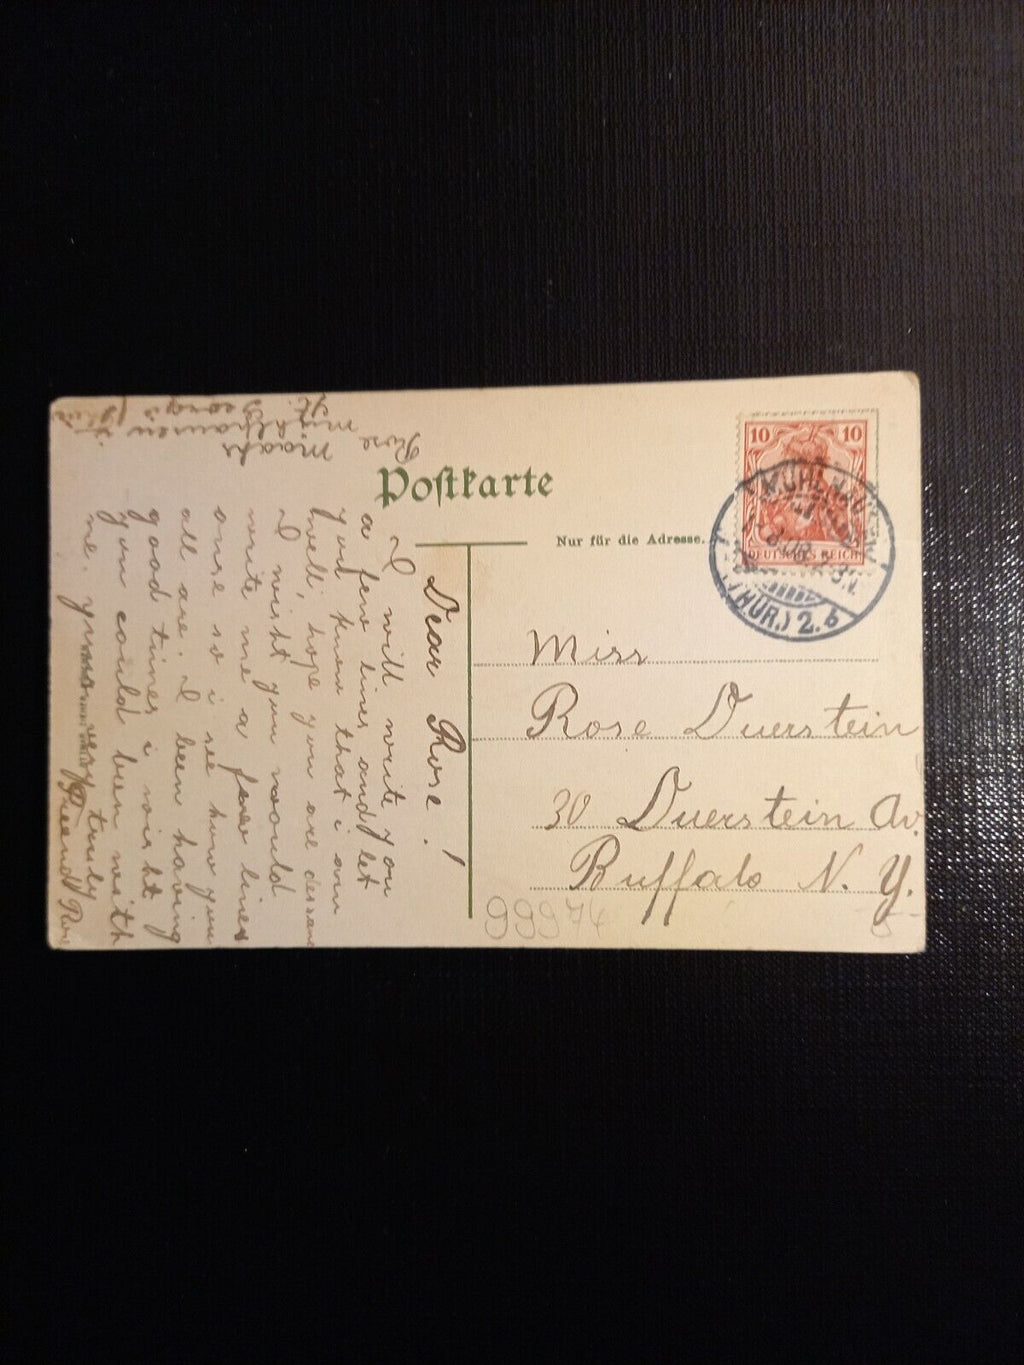 Postkarte
Nur für die Adresse.
10 10
DEUTSCHES REICH
(THÜR.) 2. b
Miss
Rose Duerstein
30 Duerstein Av.
Buffalo N. Y.
99974
Dear Rose!
I will write you
a few lines and let
you know that i am
well, hope you are
I wisht you would
write me a few lines
once so i see how you
all are. I been having
good times i wisht
you could been with
me yours very truly
Friend
Rose
Maaks